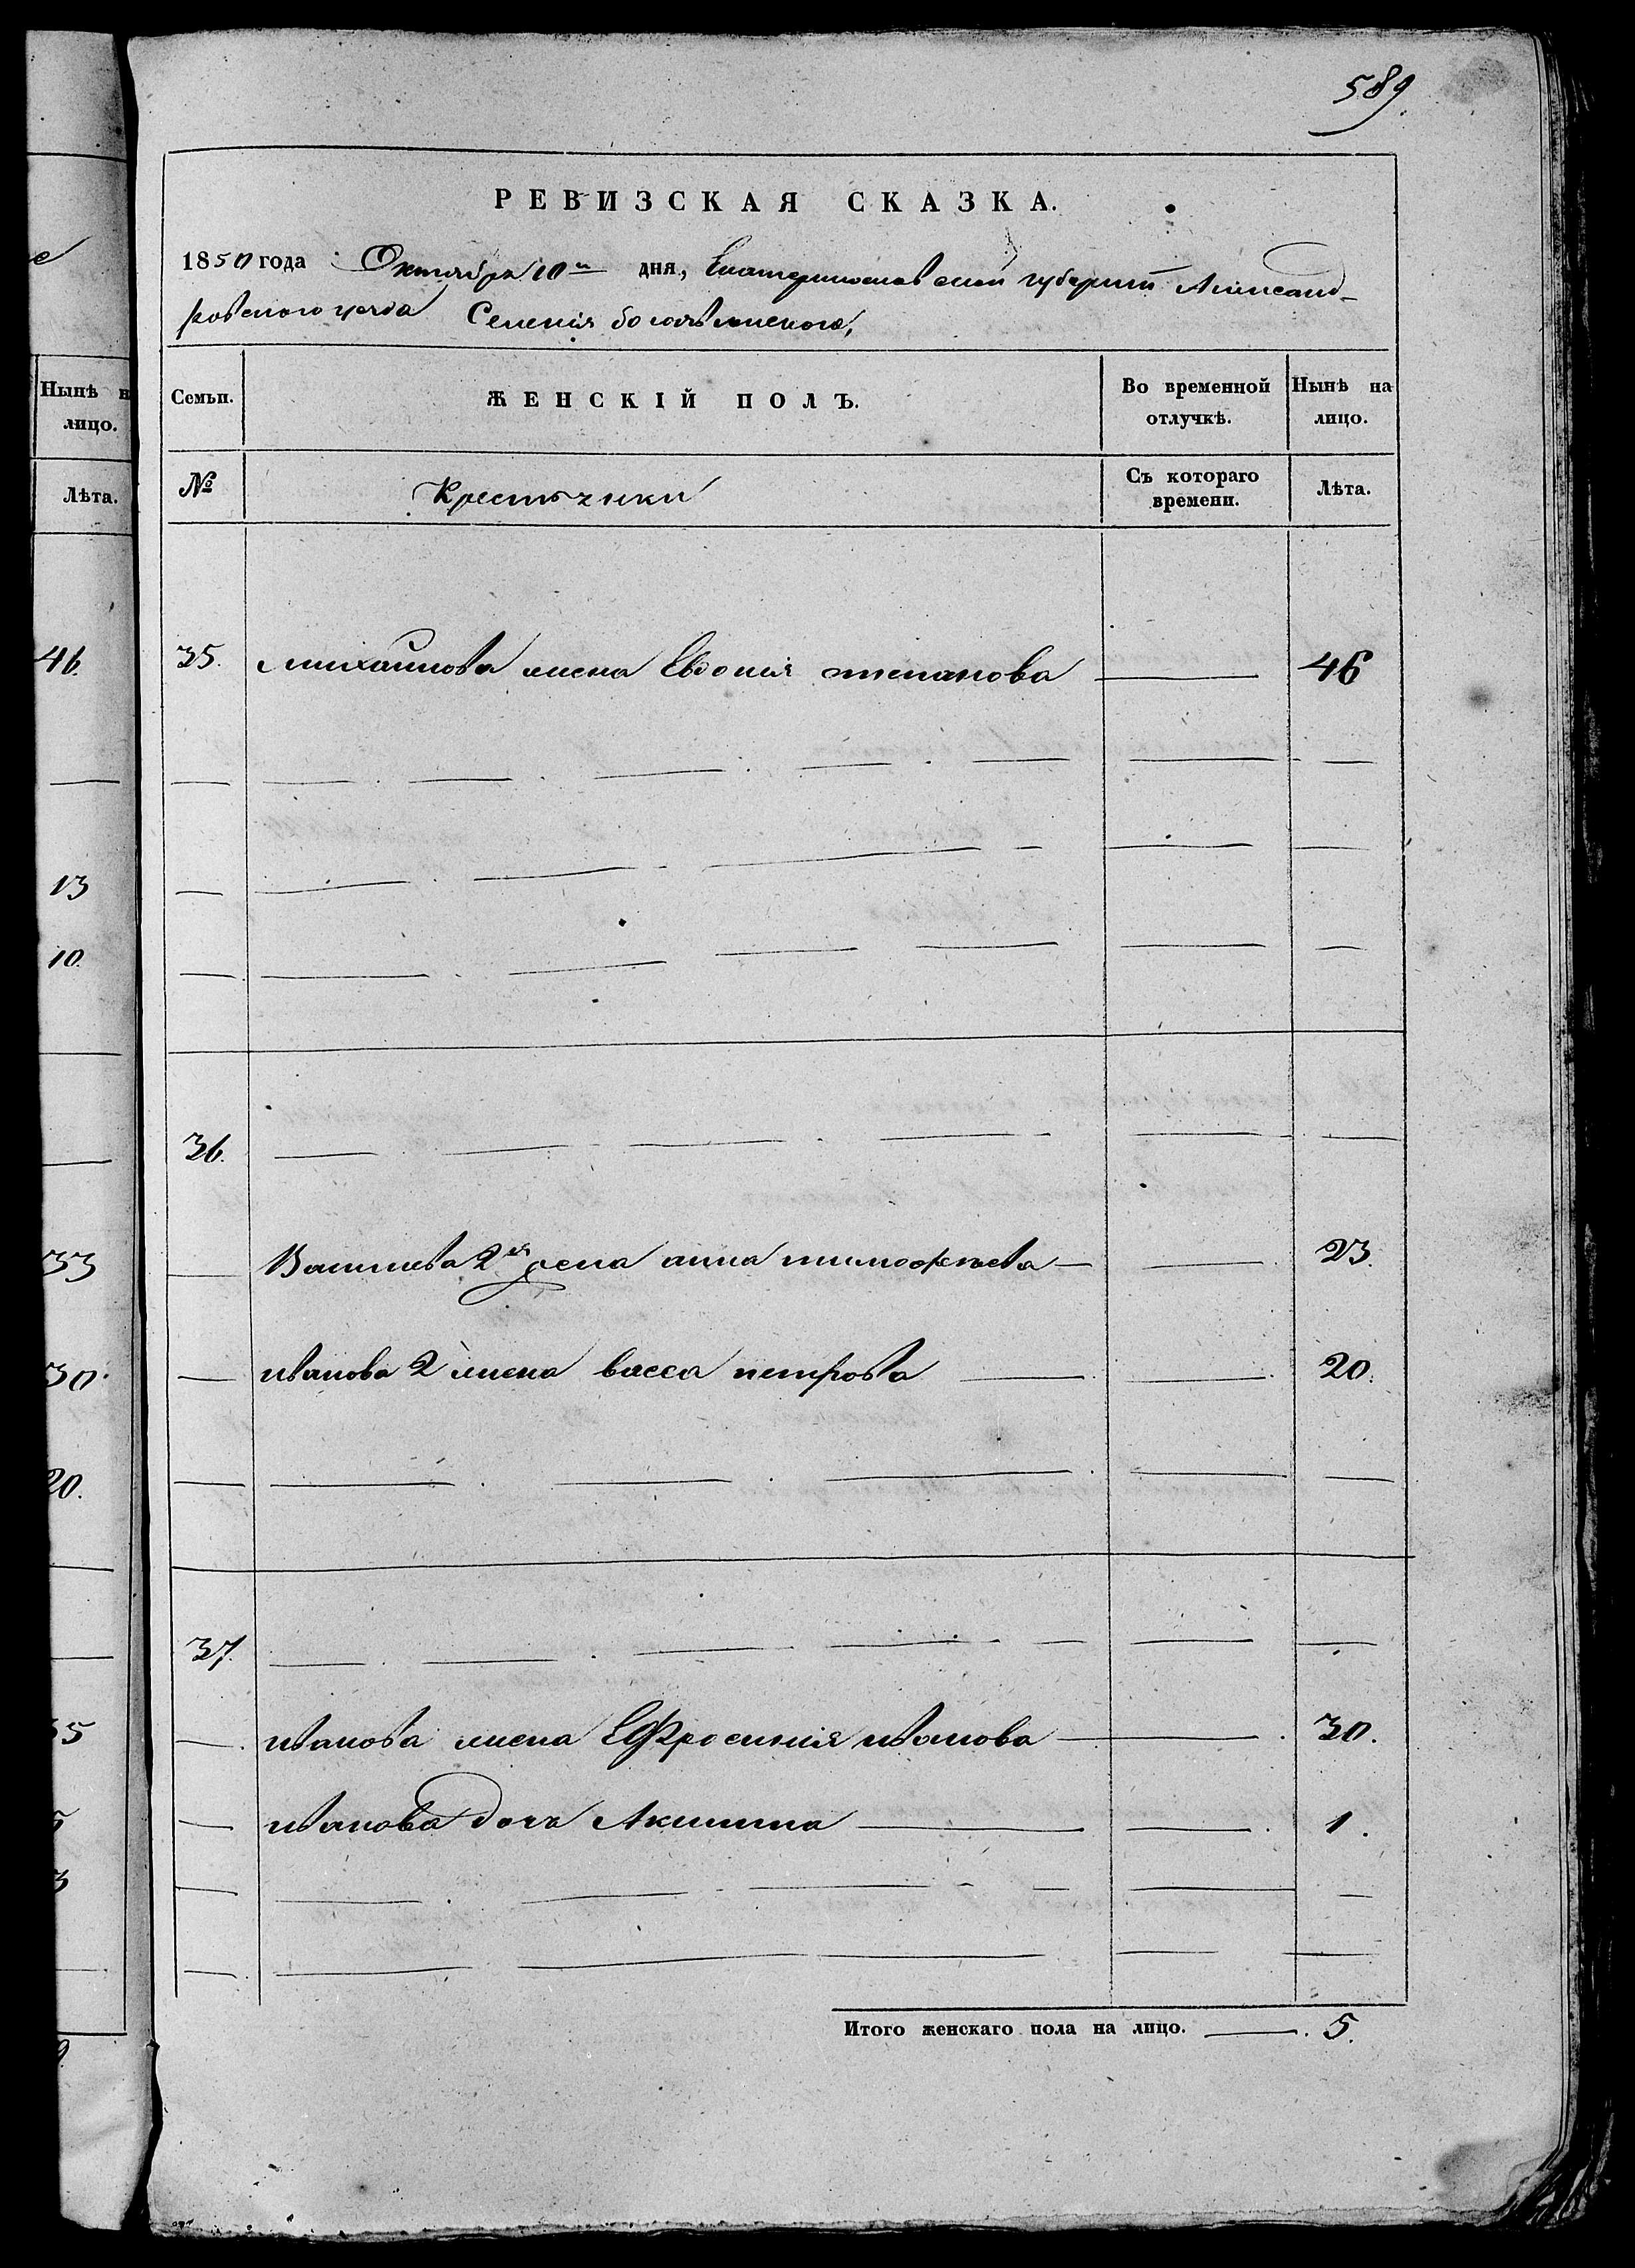 е
Нынѣ н
лицо.
Лѣта.
46.
13
10.
33
30.
20.
35
5
3
589.
РЕВИЗСКАЯ СКАЗКА.
1850 года Октября 10го дня, Екатеринославской губернии Александ-
ровского уезда Селенія богоявленского,
Семьи.
ЖЕНСКІЙ ПОЛЪ.
Во временной
отлучкѣ.
Нынѣ на
лицо.
№
Крестьянки
Съ котораго
времени.
Лѣта.
35. михайлова жена Евдокия степанова 46
36.
Васильева 2я жена анна тимофеева 23.
иванова 2 жена васса петрова 20.
37.
иванова жена Ефросинія иванова 30.
иванова дочь Акилина 1.
Итого женскаго пола на лицо. 5.